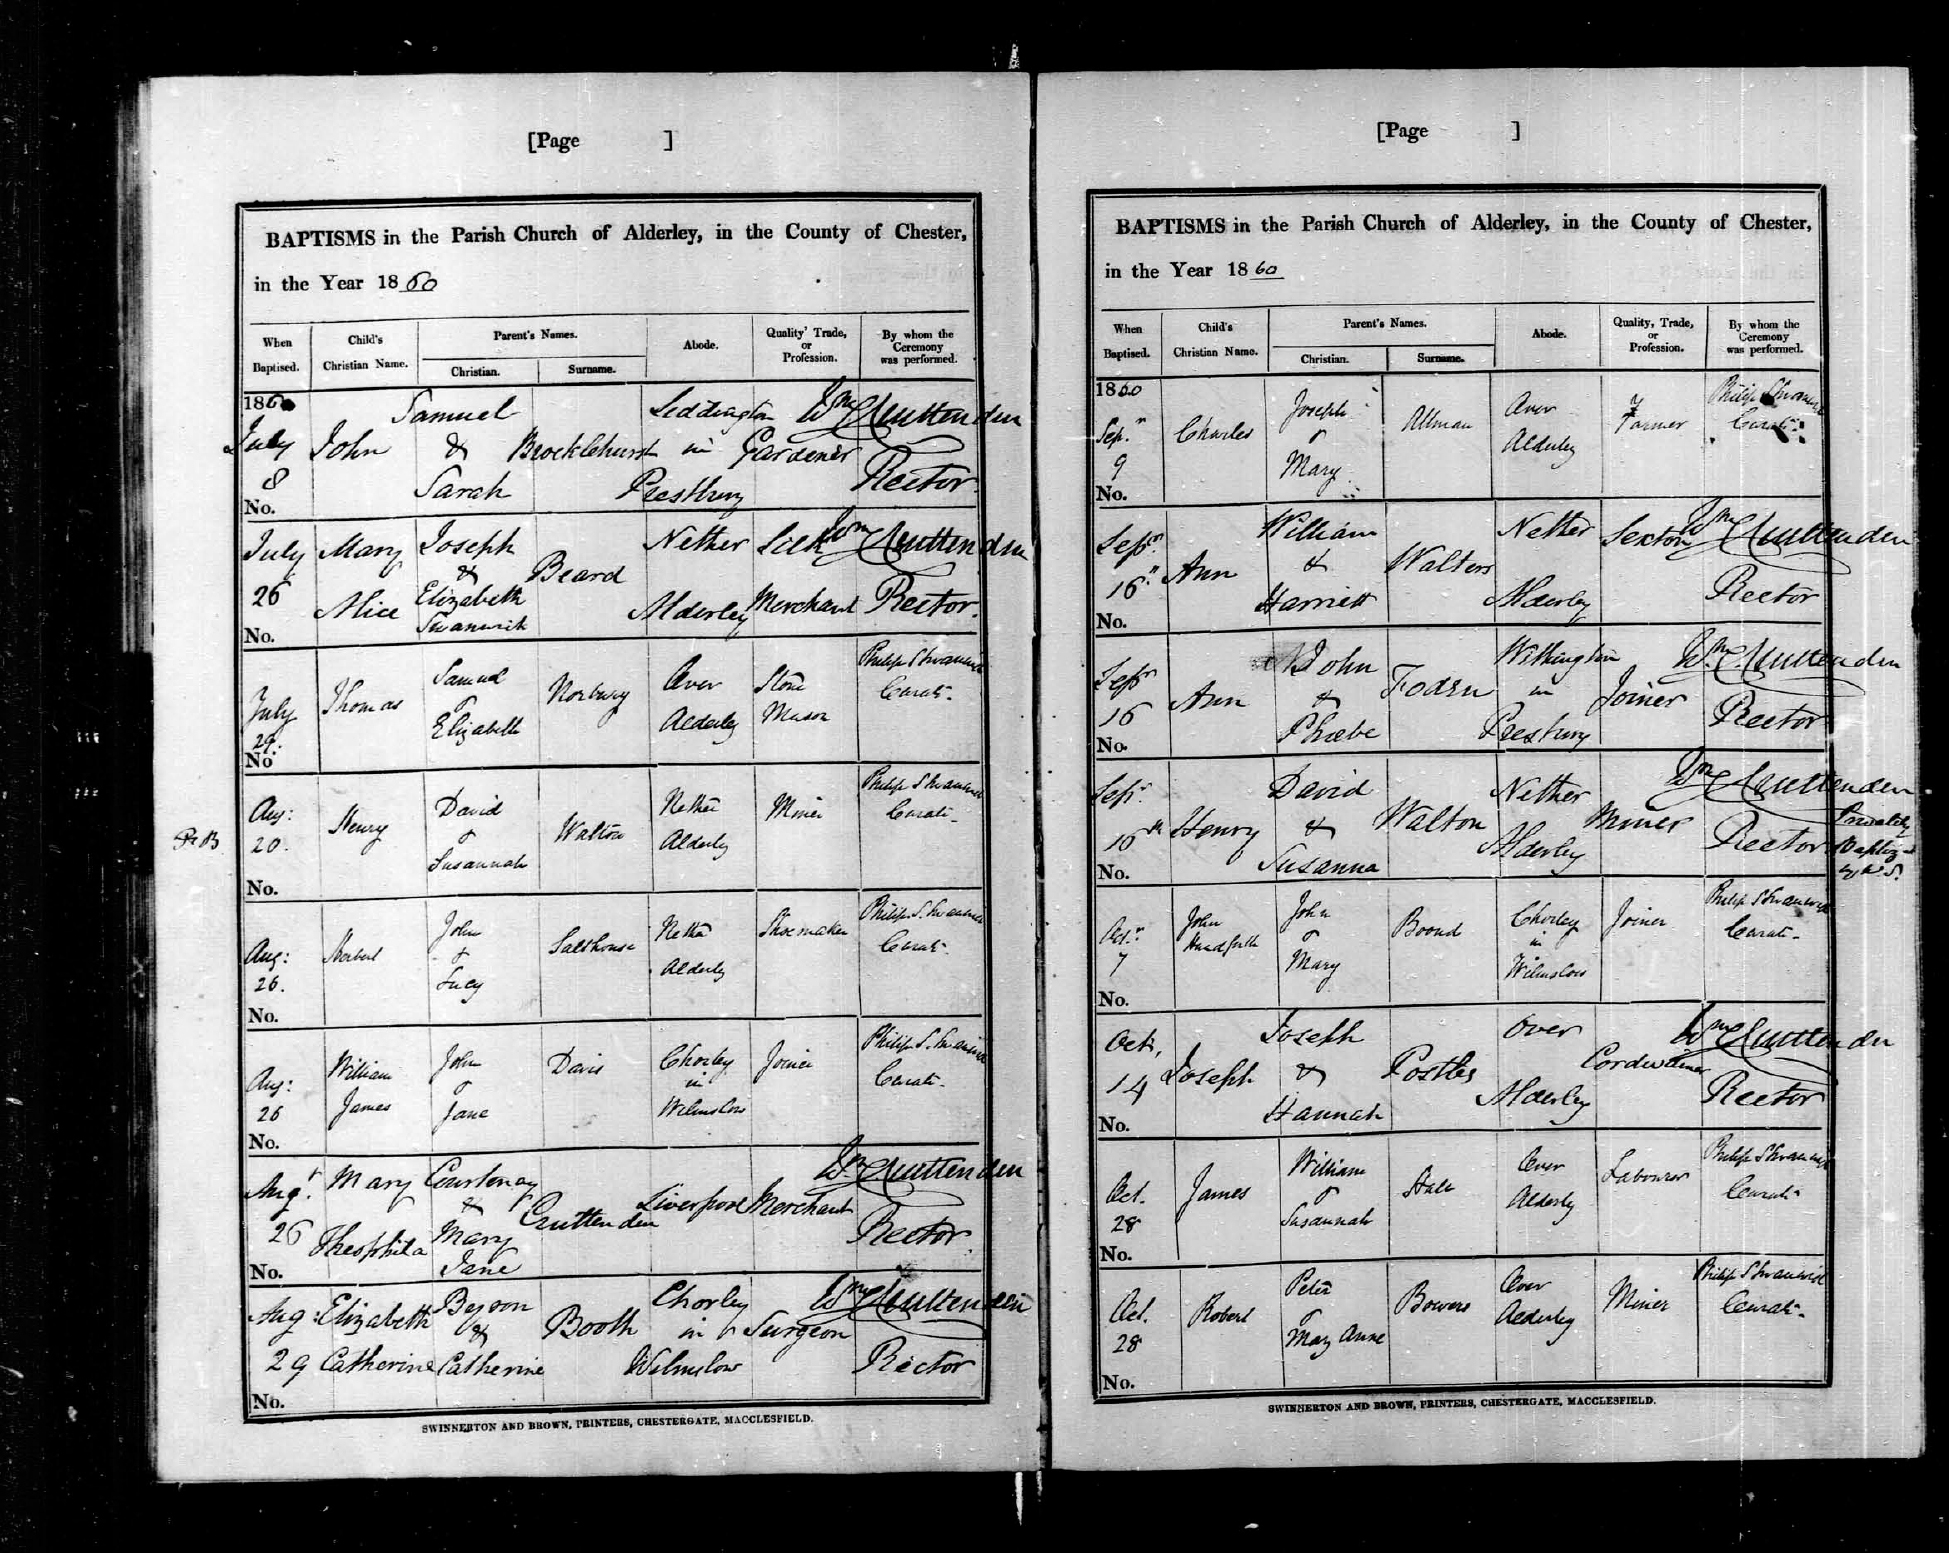 [Page ]
BAPTISMS in the Parish Church of Alderley, in the County of Chester,
in the Year 1860
When Baptised. Child's Christian Name. Parent's Names. Christian. Surname. Abode. Quality, Trade, or Profession. By whom the Ceremony was performed.
1860 July 8 John Samuel & Sarah Brocklehurst Siddington in Prestbury Gardener Wm Cruttenden Rector
No.
July 26 Mary Alice Joseph & Elizabeth Swanwick Beard Nether Alderley Silk Merchant Wm Cruttenden Rector.
No.
July 29. Thomas Samuel & Elizabeth Norbury Over Alderley Stone Mason Philip S Swanwick Curate
No
Pr B Aug: 20. Henry David & Susannah Walton Nether Alderley Miner Philip S Swanwick Curate
No.
Aug: 26. Herbert John & Lucy Salthouse Nether Alderley Shoemaker Philip S. Swanwick Curate
No.
Aug: 26 William James John & Jane Davis Chorley in Wilmslow Joiner Philip S. Swanwick Curate
No.
Augt. 26 Mary Theophila Courtenay & Mary Jane Cruttenden Liverpool Merchant Wm Cruttenden Rector.
No.
Aug: 29 Elizabeth Catherine & Catherine Booth Chorley in Wilmslow Surgeon Wm Cruttenden Rector
No.
SWINNERTON AND BROWN, PRINTERS, CHESTERGATE, MACCLESFIELD.
[Page ]
BAPTISMS in the Parish Church of Alderley, in the County of Chester,
in the Year 1860
When Baptised. Child's Christian Name. Parent's Names. Christian. Surname. Abode. Quality, Trade, or Profession. By whom the Ceremony was performed.
1860 Sep. 9 Charles Joseph & Mary Allman Over Alderley Farmer Philip S Swanwick Curate
No.
Sepr. 16 Ann William & Harriett Walters Nether Alderley Sexton Wm Cruttenden Rector
No.
Sepr 16 Ann John & Phœbe Foden Withington in Prestbury Joiner Wm Cruttenden Rector
No.
Sepr. 16th Henry David & Susanna Walton Nether Alderley Miner Wm Cruttenden Rector Privately Baptized by P. S.
No.
Oct. 7 John Handforth John & Mary Boond Chorley in Wilmslow Joiner Philip S Swanwick Curate
No.
Oct. 14 Joseph Joseph & Hannah Postles Over Alderley Cordwainer Wm Cruttenden Rector
No.
Oct. 28 James William & Susannah Over Alderley Labourer Philip S Swanwick Curate
No.
Oct. 28 Robert Peter & Mary Anne Bowers Over Alderley Miner Philip S Swanwick Curate
No.
SWINNERTON AND BROWN, PRINTERS, CHESTERGATE, MACCLESFIELD.